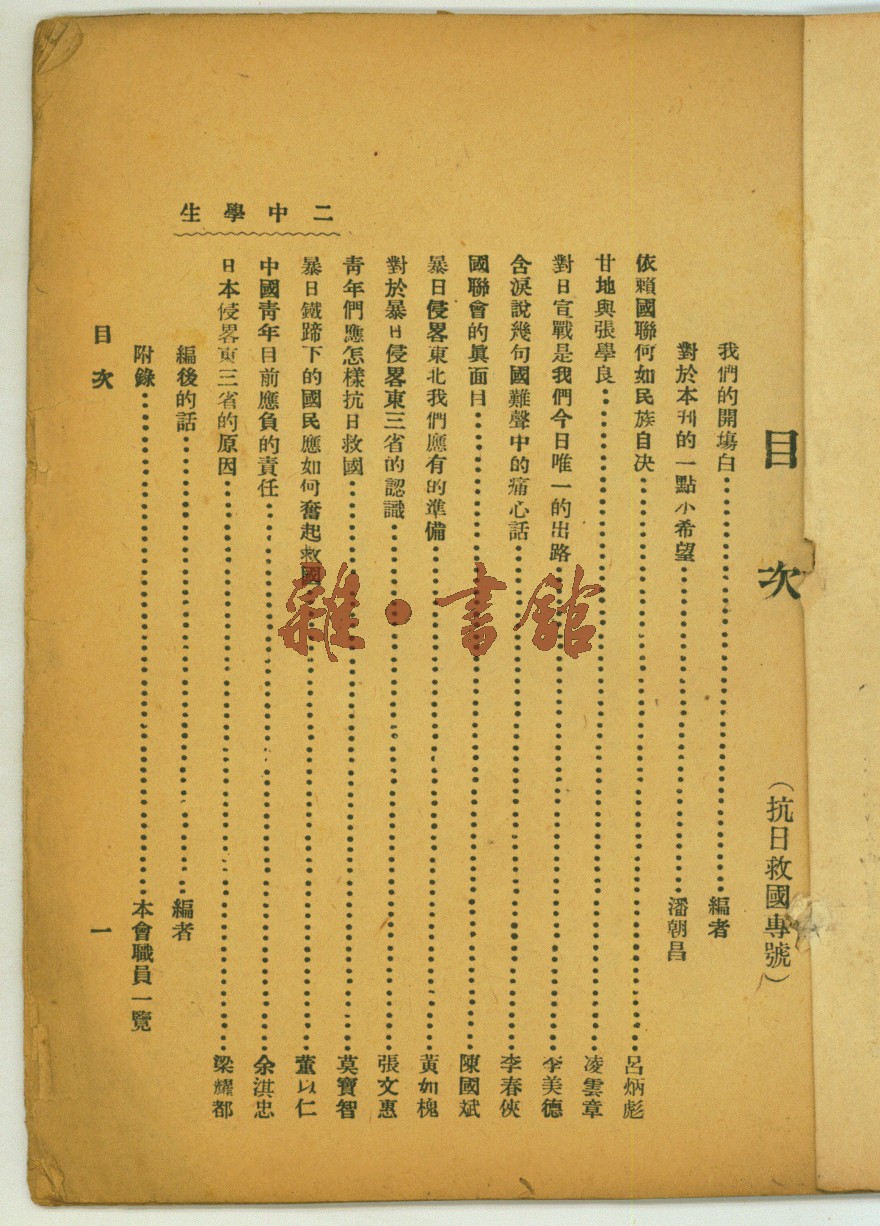 目次
（抗日救國專號）
我們的開塲白…………編者
對於本刊的一點小希望…………潘朝昌
依賴國聯何如民族自决…………呂炳彪
甘地與張學良…………凌雲章
對日宣戰是我們今日唯一的出路…………李美德
含淚說幾句國難聲中的痛心話…………李春俠
國聯會的眞面目…………陳國斌
暴日侵畧東北我們應有的準備…………黃如槐
對於暴日侵畧東三省的認識…………張文惠
靑年們應怎樣抗日救國…………莫寶智
暴日鐵蹄下的國民應如何奮起救國…………董以仁
中國靑年目前應負的責任…………余淇忠
日本侵畧東三省的原因…………梁耀都
編後的話…………編者
附錄…………本會職員一覽
二中學生
目次
一
雜·書館